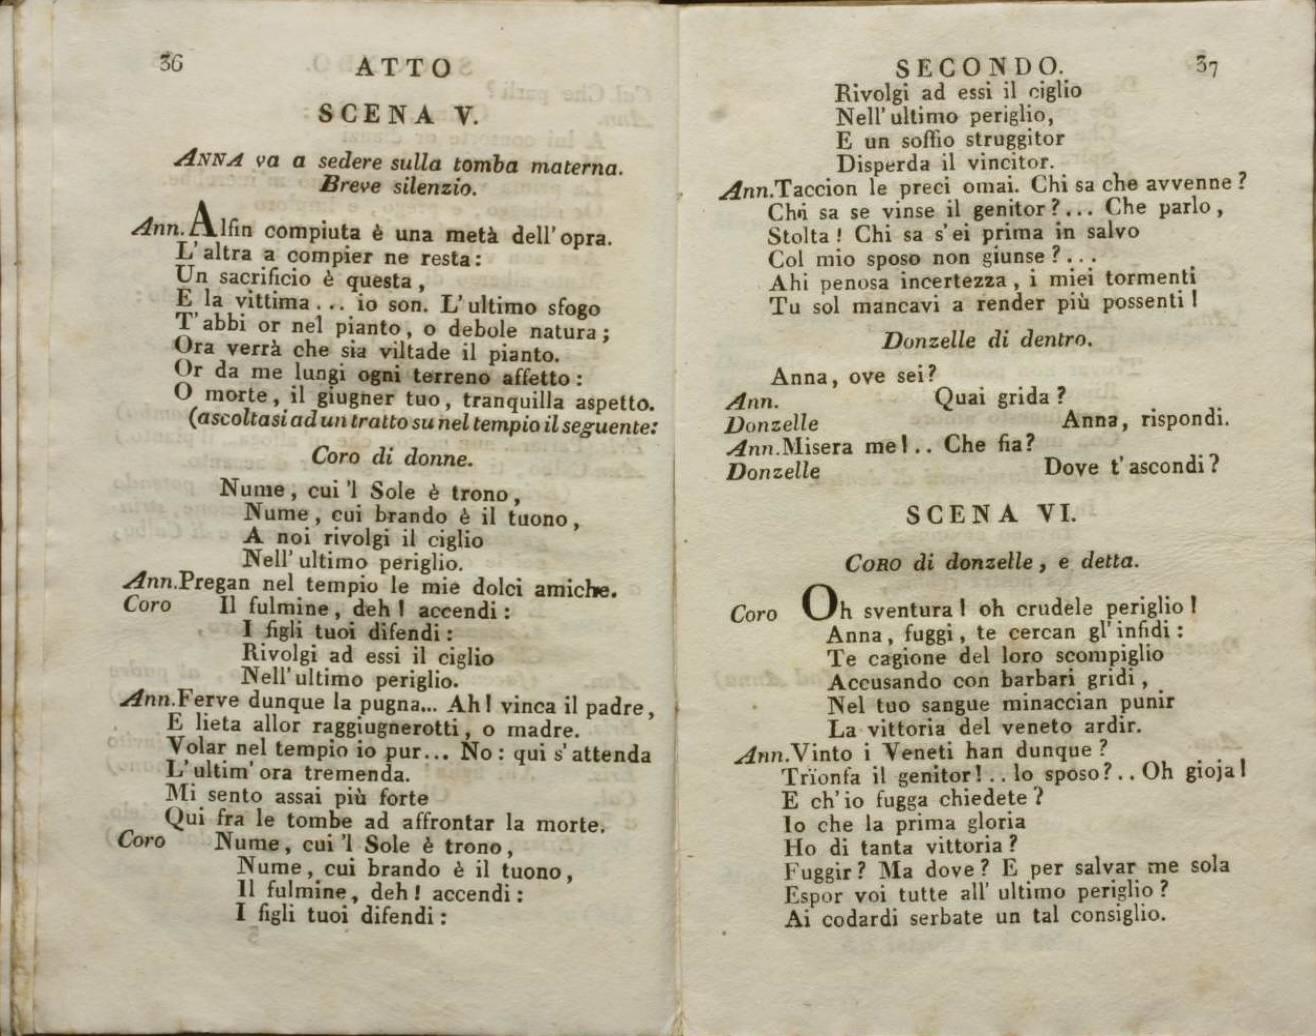 36
ATTO
SCENA V.
ANNA va a sedere sulla tomba materna.
Breve silenzio.
Ann. Alfin compiuta è una metà dell' opra.
L' altra a compier ne resta:
Un sacrificio è questa,
E la vittima... io son. L' ultimo sfogo
T' abbi or nel pianto, o debole natura;
Ora verrà che sia viltade il pianto.
Or da me lungi ogni terreno affetto:
O morte, il giugner tuo, tranquilla aspetto.
(ascoltasi ad un tratto su nel tempio il seguente:
Coro di donne.
Nume, cui 'l Sole è trono,
Nume, cui brando è il tuono,
A noi rivolgi il ciglio
Nell' ultimo periglio.
Ann. Pregan nel tempio le mie dolci amiche.
Coro Il fulmine, deh! accendi:
I figli tuoi difendi:
Rivolgi ad essi il ciglio
Nell' ultimo periglio.
Ann. Ferve dunque la pugna... Ah! vinca il padre,
E lieta allor raggiugnerotti, o madre.
Volar nel tempio io pur... No: qui s' attenda
L' ultim' ora tremenda.
Mi sento assai più forte
Qui fra le tombe ad affrontar la morte.
Coro Nume, cui 'l Sole è trono,
Nume, cui brando è il tuono,
Il fulmine, deh! accendi:
I figli tuoi difendi:
SECONDO. 37
Rivolgi ad essi il ciglio
Nell' ultimo periglio,
E un soffio struggitor
Disperda il vincitor.
Ann. Taccion le preci omai. Chi sa che avvenne?
Chi sa se vinse il genitor?... Che parlo,
Stolta! Chi sa s' ei prima in salvo
Col mio sposo non giunse?...
Ahi penosa incertezza, i miei tormenti
Tu sol mancavi a render più possenti!
Donzelle di dentro.
Anna, ove sei?
Ann. Quai grida?
Donzelle Anna, rispondi.
Ann. Misera me!.. Che fia?
Donzelle Dove t' ascondi?
SCENA VI.
CORO di donzelle, e detta.
Coro Oh sventura! oh crudele periglio!
Anna, fuggi, te cercan gl' infidi:
Te cagione del loro scompiglio
Accusando con barbari gridi,
Nel tuo sangue minaccian punir
La vittoria del veneto ardir.
Ann. Vinto i Veneti han dunque?
Trïonfa il genitor!.. lo sposo?.. Oh gioja!
E ch' io fugga chiedete?
Io che la prima gloria
Ho di tanta vittoria?
Fuggir? Ma dove? E per salvar me sola
Espor voi tutte all' ultimo periglio?
Ai codardi serbate un tal consiglio.